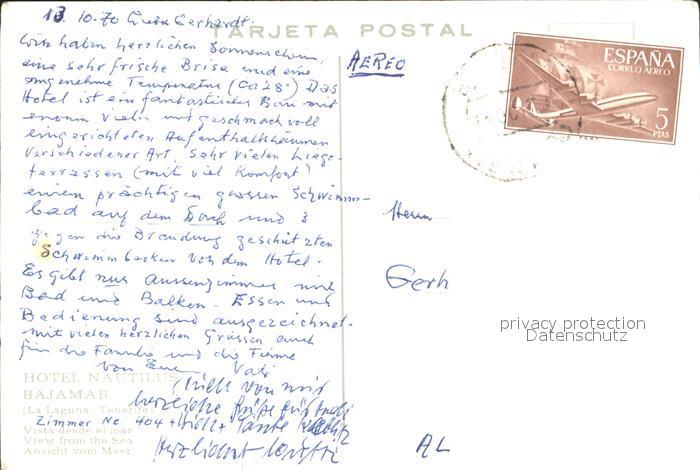 13 10.70 Liebe Gerhardt.
TARJETA POSTAL
Wir haben herrlichen Sonnenschein,
eine sehr frische Brise und eine
angenehme Temperatur (ca 28°) Das
Hotel ist ein fantastischer Bau mit
enorm vielen und geschmackvoll
eingerichteten Aufenthaltsräumen
verschiedener Art, sehr vielen Liege-
terrassen (mit viel Komfort)
einem prächtigen grossen Schwimm-
bad auf dem Dach und 3
gegen die Brandung geschützten
Schwimmbecken vor dem Hotel.
Es gibt nur Aussenzimmer mit
Bad und Balkon. Essen und
Bedienung sind ausgezeichnet.
mit vielen herzlichen Grüssen auch
für die Familie und die Firma
von Vati
HOTEL NAUTILUS
BAJAMAR
(La Laguna - Tenerife)
Zimmer No. 404
Vista desde el mar
View from the Sea
Ansicht vom Meer
von mir
herzliche Grüße für
Tante
Herzlichst
AEREO
ESPAÑA
CORREO AEREO
5
PTAS
Herrn
Gerh
privacy protection
Datenschutz
AL